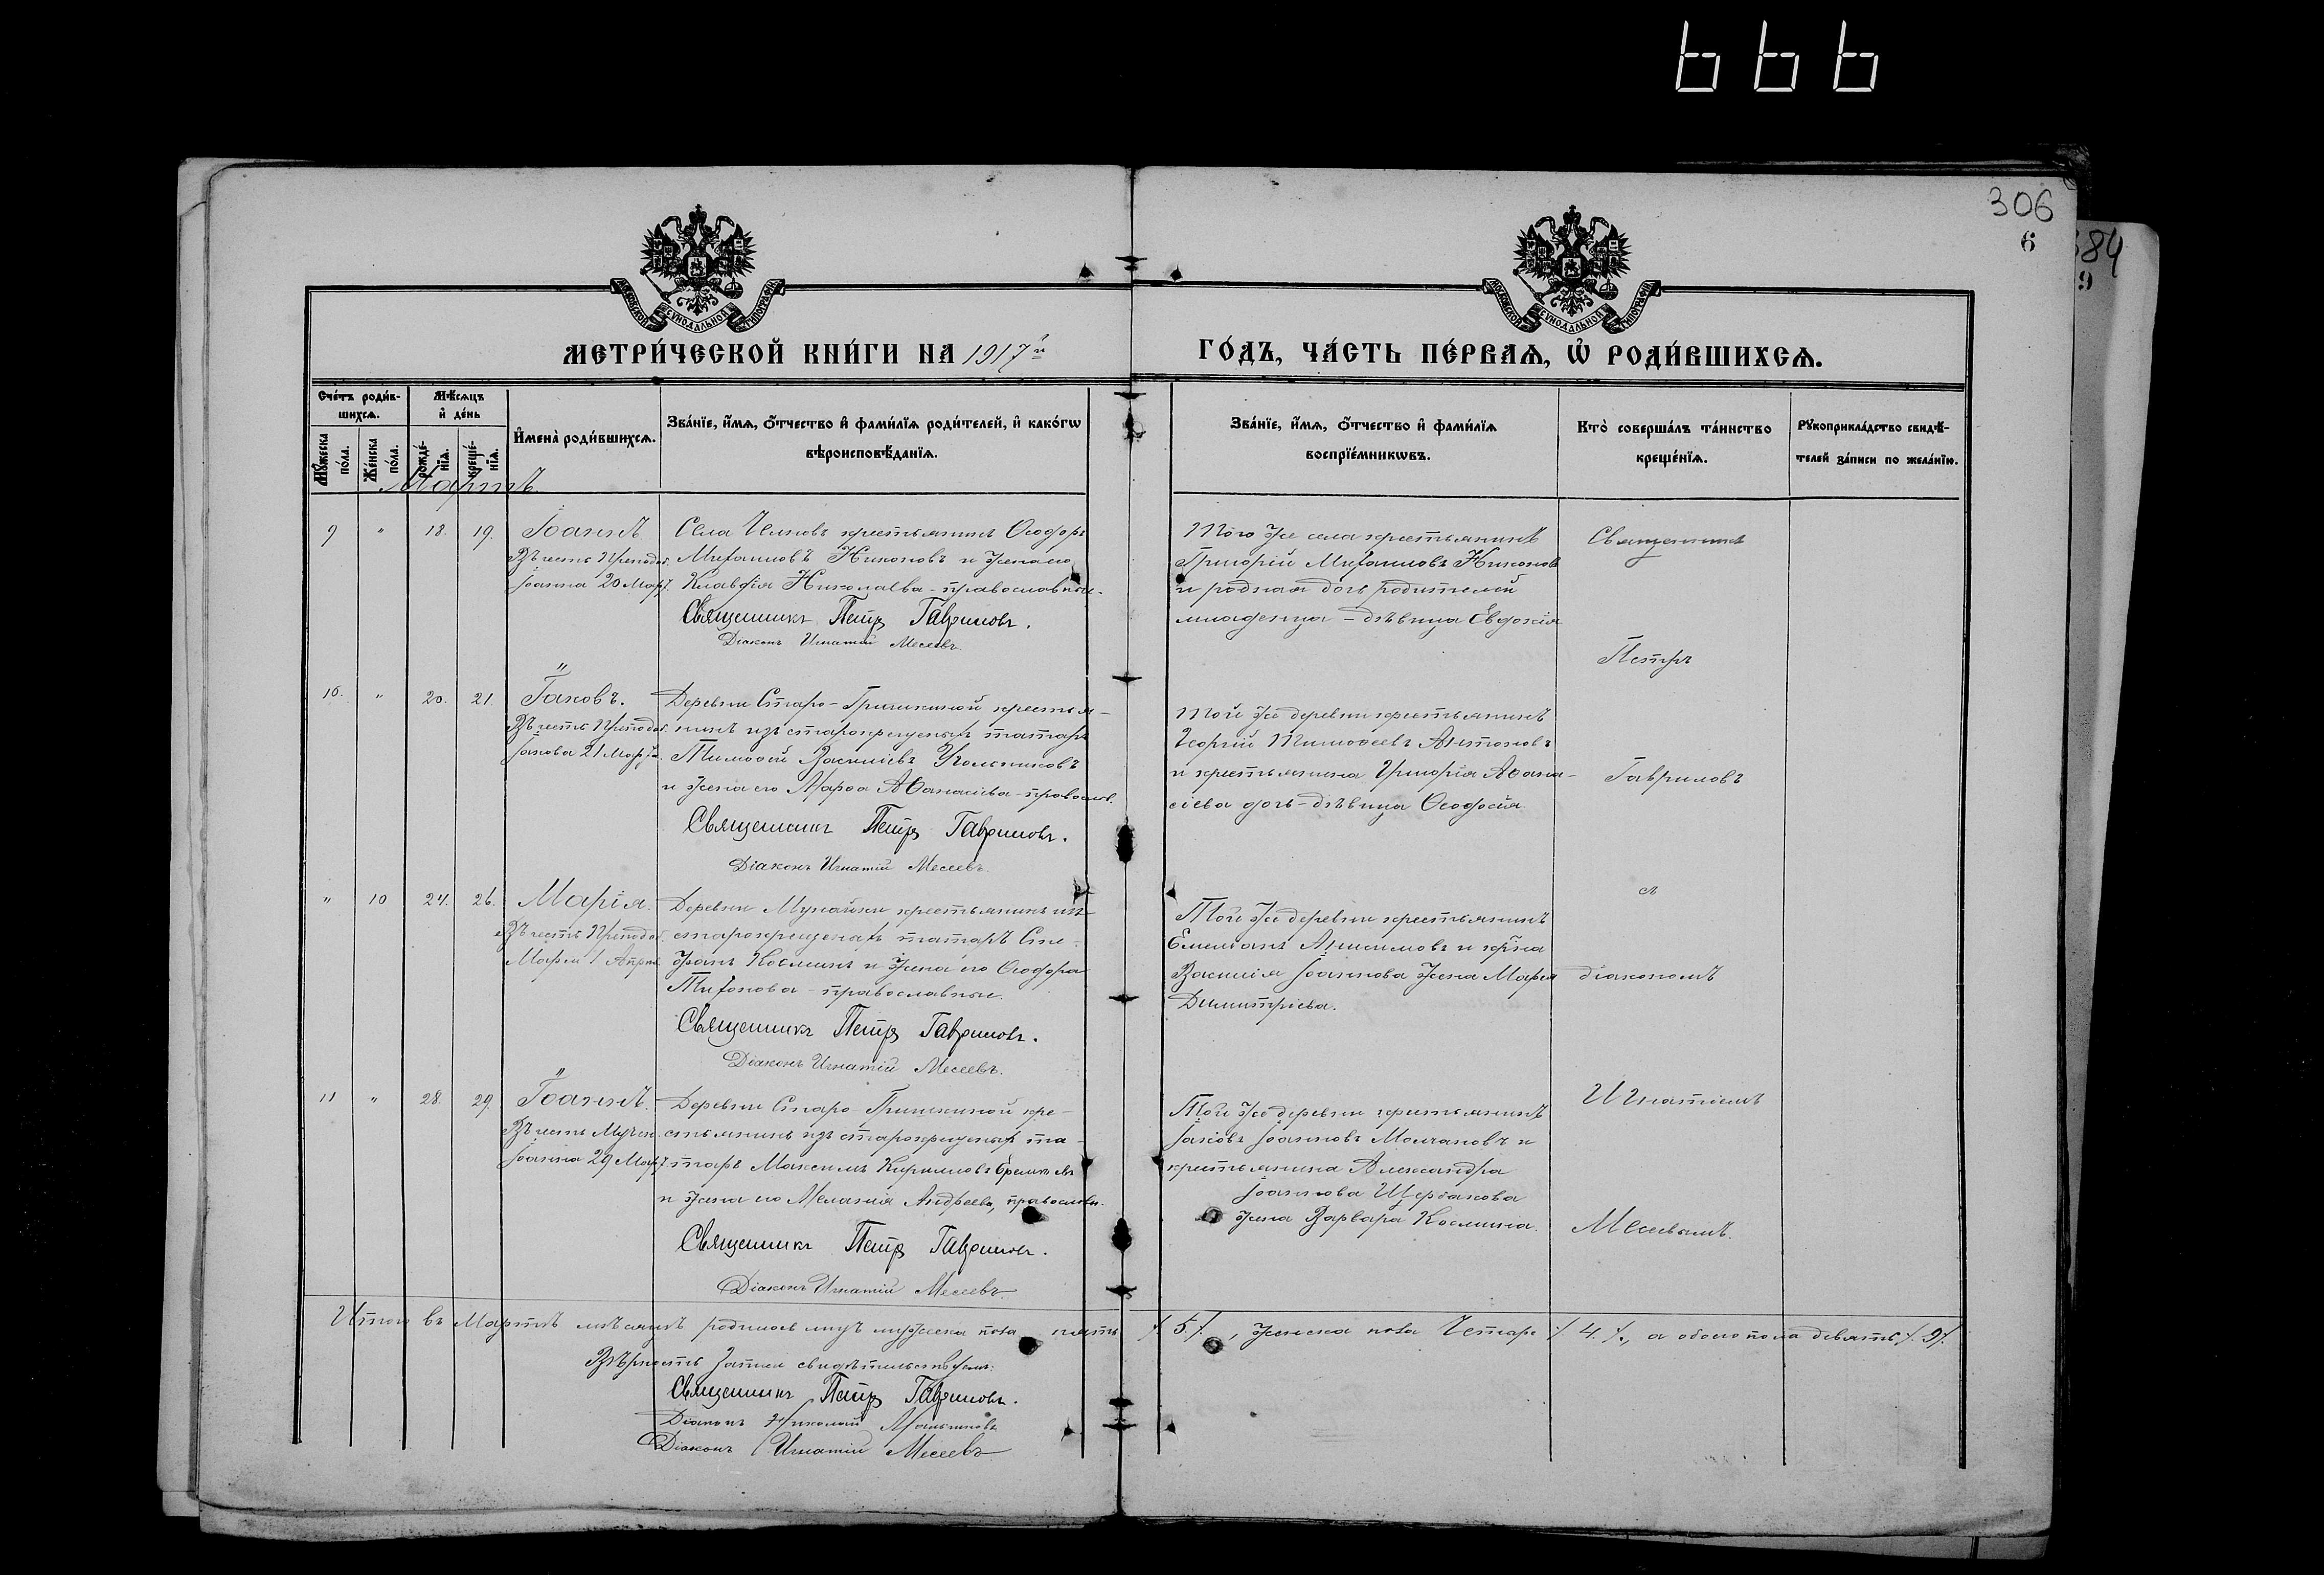 666
306
6
384
9
МОСКОВСКОЙ СѴНОДАЛЬНОЙ ТИПОГРАФІИ
МОСКОВСКОЙ СѴНОДАЛЬНОЙ ТИПОГРАФІИ
МЕТРИ́ЧЕСКОЙ КНИ́ГИ НА 1917й
ГО́ДЪ, ЧА́СТЬ ПЕ́РВАѦ, Ѽ РОДИ́ВШИХСѦ.
Сче́тъ роди́в-
шихсѧ.
Мѣ́сѧцъ
и҆ де́нь
Мꙋ́жеска по́ла.
Же́нска по́ла.
рожде́-нїѧ.
креще́-нїѧ.
И҆мена̀ роди́вшихсѧ.
Зва́нїе, и҆́мѧ, ѻ҆́тчество и҆ фами́лїѧ роди́телей, и҆ како́гѡ
вѣроисповѣ́данїѧ.
Зва́нїе, и҆́мѧ, ѻ҆́тчество и҆ фами́лїѧ
воспрїе́мникѡвъ.
Кто̀ соверша́лъ та́инство
креще́нїѧ.
Рꙋкоприкла́дство свидѣ́-
телей за́писи по жела́нїю.
Мартъ.
9 " 18. 19. Іоаннъ.
Въ честь Преподоб.
Іоанна 20 Март.
Села Челновъ крестьянинъ Ѳеодоръ
Михаиловъ Никоновъ и жена его
Клавдія Николаева - православные.
Священникъ Петръ Гавриловъ.
Діаконъ Игнатій Месеевъ.
Того же села крестьянинъ
Григорій Михаиловъ Никоновъ
и родная дочь родителей
младенца - дѣвица Евдокія
Священникъ
Петръ
10. " 20. 21. Іаковъ.
Въ честь Преподоб.
Іакова 21 Марта.
Деревни Старо-Гришкиной крестья-
нинъ изъ старокрещеныхъ татаръ
Тимоѳей Василіевъ Колесниковъ
и жена его Марѳа Аѳанасіева - православ.
Священникъ Петръ Гавриловъ.
Діаконъ Игнатій Месеевъ.
Той же деревни крестьянинъ
Георгій Тимоѳеевъ Антоновъ
и крестьянина Григорія Аѳана-
сіева дочь - дѣвица Ѳеодосія.
Гавриловъ
" 10 24. 26. Марія.
Въ честь Преподоб.
Маріи 1 Апрѣл.
Деревни Мунайки крестьянинъ изъ
старокрещеныхъ татаръ Сте-
фанъ Косминъ и жена его Ѳеодора
Тихонова - православные.
Священникъ Петръ Гавриловъ.
Діаконъ Игнатій Месеевъ.
Той же деревни крестьянинъ
Емеліанъ Анисимовъ и кр-на
Василія Іоаннова жена Марія
Димитріева.
съ
діакономъ
11 " 28. 29. Іоаннъ.
Въ честь Мучен.
Іоанна 29 Март.
Деревни Старо-Гришкиной кре-
стьянинъ изъ старокрещеныхъ та-
таръ Максимъ Кирилловъ Еремѣевъ
и жена его Меланія Андреева, православн.
Священникъ Петръ Гавриловъ.
Діаконъ Игнатій Месеевъ
Той же деревни крестьянинъ
Іаковъ Іоанновъ Молчановъ и
крестьянина Александра
Іоаннова Щербакова
жена Варвара Космина.
Игнатіемъ
Месеевымъ.
Итого въ Мартѣ мѣсяцѣ родилось лицъ мужеска пола пять /.5./., женска пола Четыре /.4./., а обоего пола девять /.9./.
Вѣрность записи свидѣтельствуемъ:
Священникъ Петръ Гавриловъ.
Діаконъ Николай
Діаконъ Игнатій Месеевъ